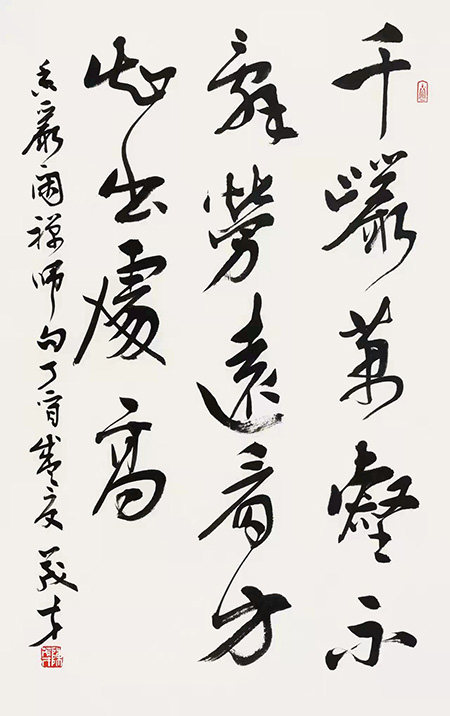 千巖萬壑不
辭勞遠看方
知出處高
香嚴閑禪師句丁酉盛夏義才